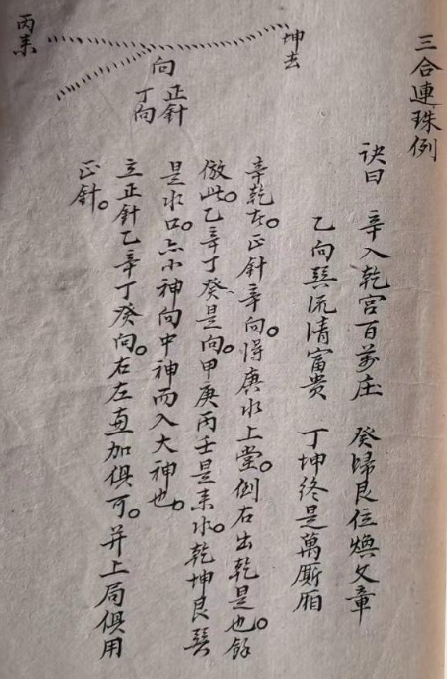 三合連珠例
訣曰 辛入乾宮百萬庄 癸歸艮位煥文章
乙向巽流清富貴 丁坤終是萬厮廂
辛乾在。正針辛向。得庚水上堂。倒右出乾是也。餘
倣此。乙辛丁癸是向。甲庚丙壬是來水。乾坤艮巽
是水口。亦小神向中神而入大神也。
立正針乙辛丁癸向。右左直加俱可。并上局俱用
正針。
坤去
向
正針
丁向
丙来